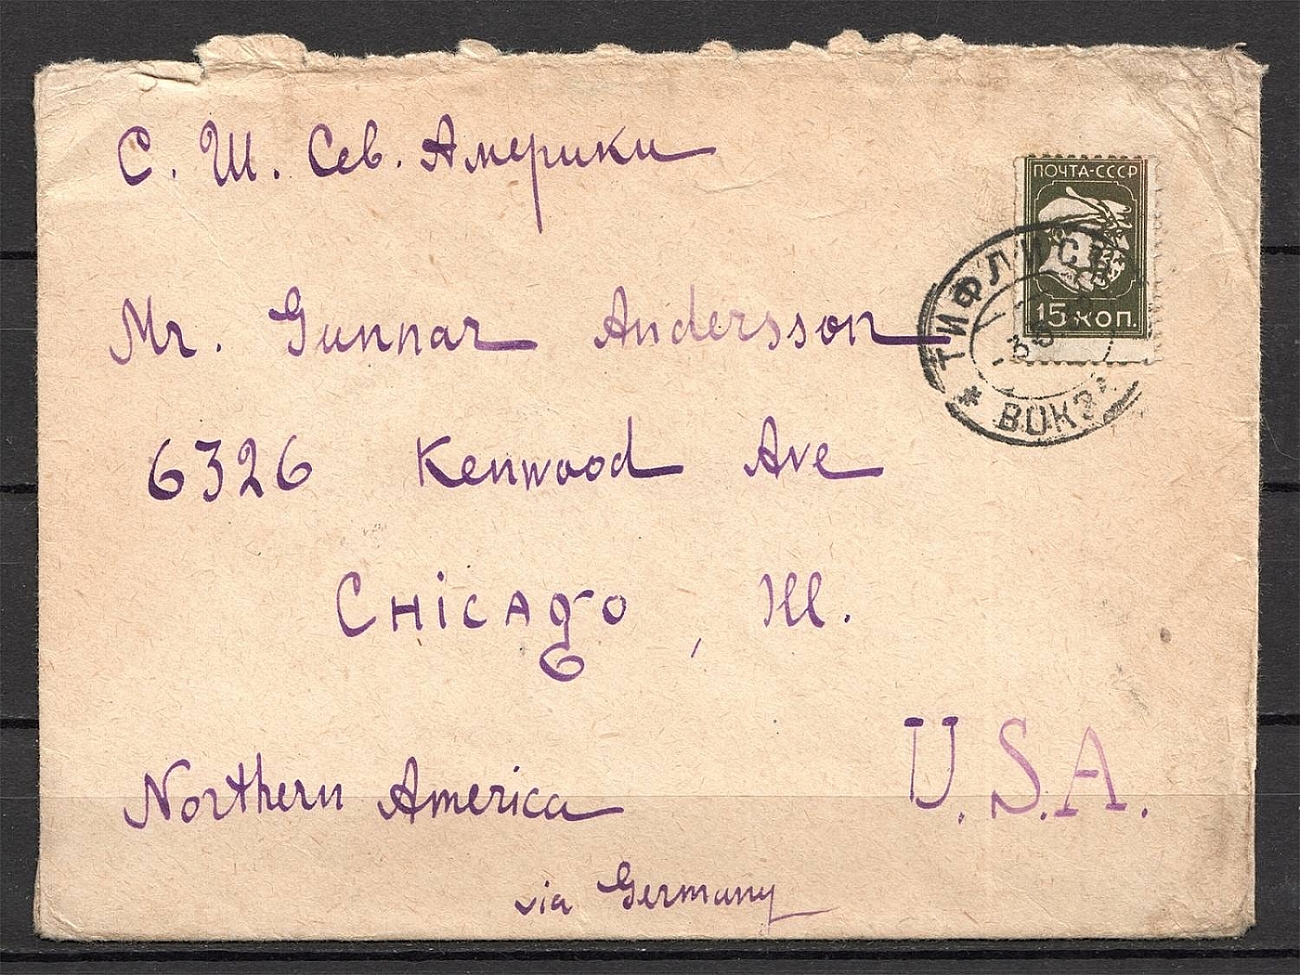 С. Ш. Сев. Америки
ПОЧТА-СССР
15 КОП.
ТИФЛИС
ВОКЗ
Mr. Gunnar Andersson
6326 Kenwood Ave
Chicago, Ill.
U.S.A.
Northern America
via Germany